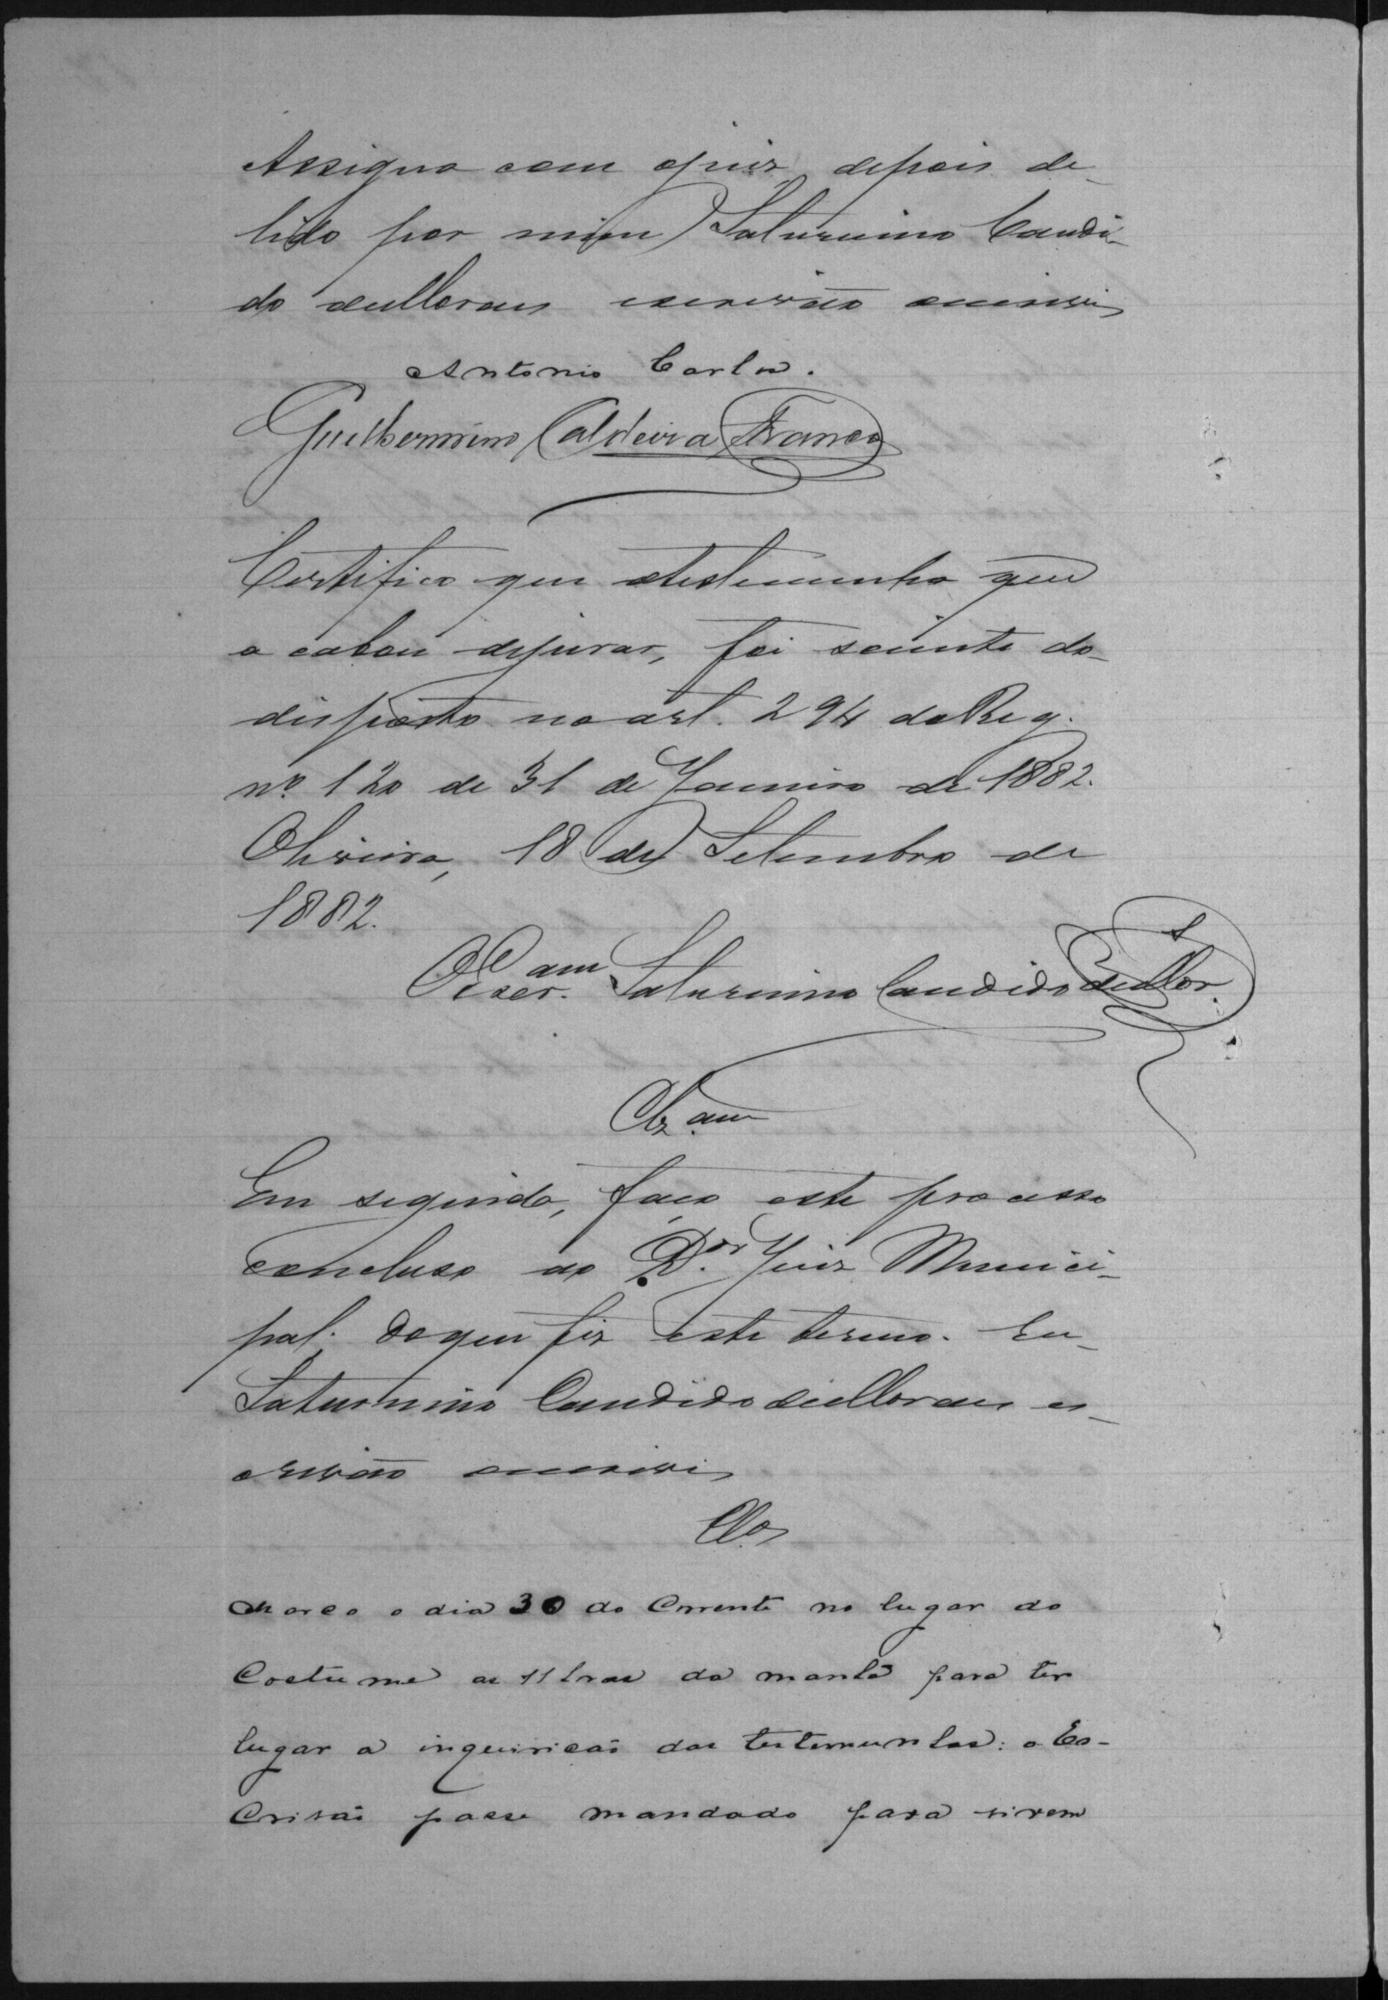 Assigna com ojuiz, depois de
lido por mim Saturnino Candi-
do deMoraes escrivão escrivi
Antonio Carlos.
Guilhermino Caldeira Franco
Certifico que atestemunha que
a cabou dejurar, foi sciente do
disposto no art. 294 do Reg.
nº 120 de 31 de Janeiro de 1882.
Oliveira, 18 de Setembro de
1882.
O Escr.am Saturnino Candido deMor.s
Clz.am
Em seguida, faço este processo
concluso ao Dor. Juiz Munici-
pal; doque fiz este termo. Eu
Saturnino Candido deMoraes es-
crivão escrivi
Clos
Marco o dia 30 do Corrente no lugar do
Costume as 11 horas da manhã para ter
lugar a inquiricaõ das testemunhas: o Es-
Crivaõ passe mandado para virem